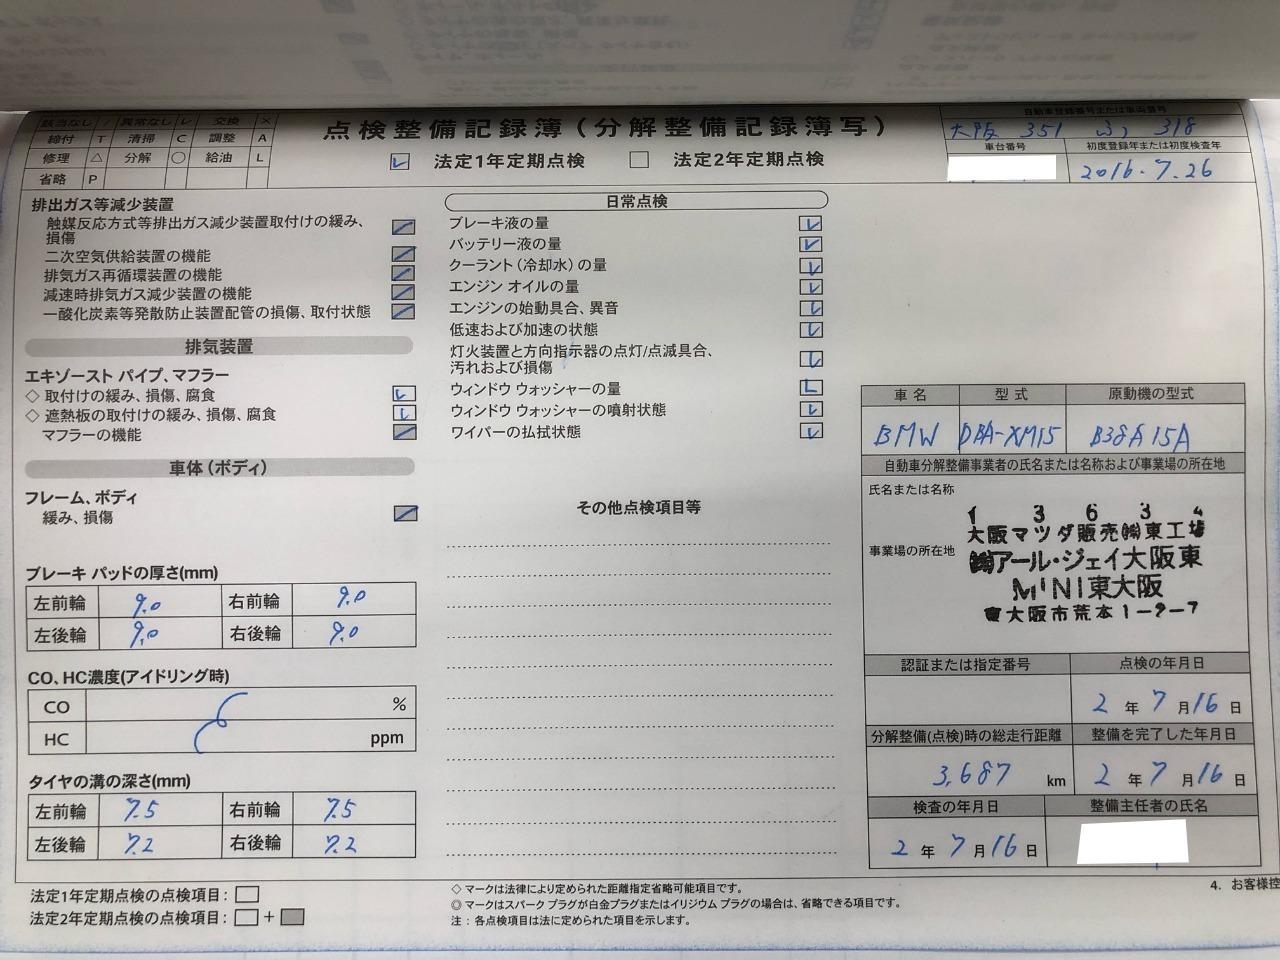 該当なし / 異常なし レ 交換 ×
締付 T 清掃 C 調整 A
修理 △ 分解 ○ 給油 L
省略 P
点検整備記録簿(分解整備記録簿写)
レ 法定1年定期点検 法定2年定期点検
自動車登録番号または車両番号
大阪 351 318
車台番号 初度登録年または初度検査年
2016.7.26
排出ガス等減少装置
触媒反応方式等排出ガス減少装置取付けの緩み、
損傷
二次空気供給装置の機能
排気ガス再循環装置の機能
減速時排気ガス減少装置の機能
一酸化炭素等発散防止装置配管の損傷、取付状態
排気装置
エキゾースト パイプ、マフラー
◇ 取付けの緩み、損傷、腐食 レ
◇ 遮熱板の取付けの緩み、損傷、腐食 レ
マフラーの機能
車体(ボディ)
フレーム、ボディ
緩み、損傷
ブレーキ パッドの厚さ(mm)
左前輪 9.0 右前輪 9.0
左後輪 9.0 右後輪 9.0
CO、HC濃度(アイドリング時)
CO %
HC ppm
タイヤの溝の深さ(mm)
左前輪 7.5 右前輪 7.5
左後輪 7.2 右後輪 7.2
日常点検
ブレーキ液の量 レ
バッテリー液の量 レ
クーラント(冷却水)の量 レ
エンジン オイルの量 レ
エンジンの始動具合、異音 レ
低速および加速の状態 レ
灯火装置と方向指示器の点灯/点滅具合、
汚れおよび損傷 レ
ウィンドウ ウォッシャーの量 L
ウィンドウ ウォッシャーの噴射状態 レ
ワイパーの払拭状態 レ
その他点検項目等
車名 型式 原動機の型式
BMW DBA-XM15 B38A15A
自動車分解整備事業者の氏名または名称および事業場の所在地
氏名または名称
事業場の所在地
1 3 6 3 4
大阪マツダ販売㈱東工場
㈱アール・ジェイ大阪東
MINI東大阪
東大阪市荒本1-9-7
認証または指定番号 点検の年月日
2年7月16日
分解整備(点検)時の総走行距離 整備を完了した年月日
3,687 km 2年7月16日
検査の年月日 整備主任者の氏名
2年7月16日
法定1年定期点検の点検項目:
法定2年定期点検の点検項目: +
◇ マークは法律により定められた距離指定省略可能項目です。
◎ マークはスパーク プラグが白金プラグまたはイリジウム プラグの場合は、省略できる項目です。
注 : 各点検項目は法に定められた項目を示します。
4. お客様控